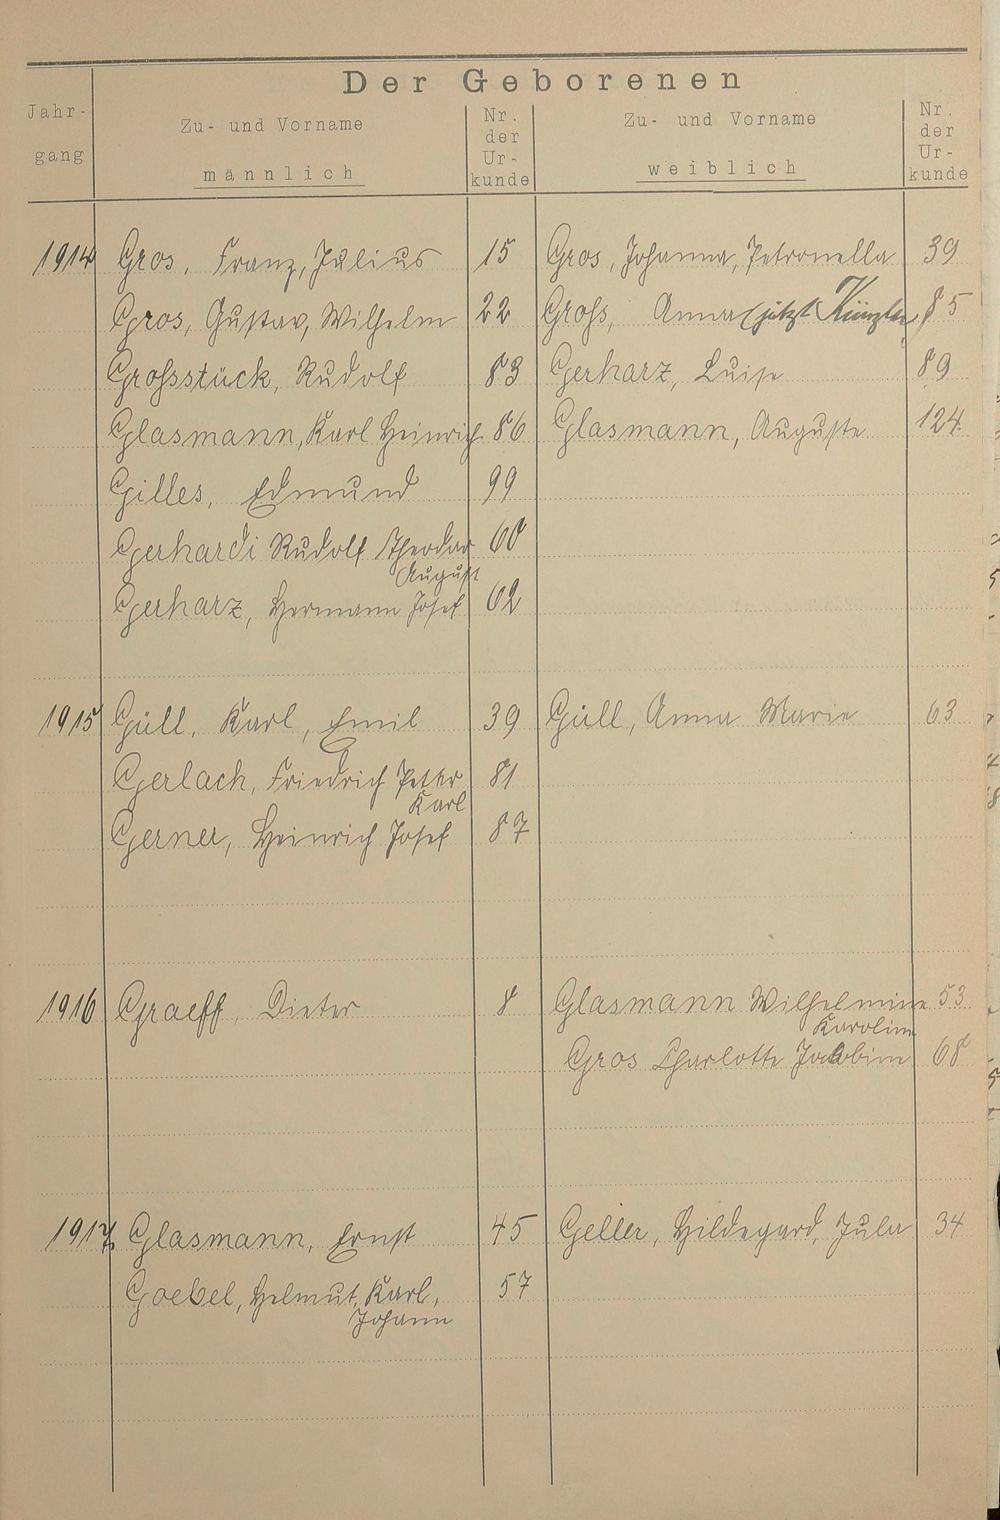 Der Geborenen
Jahr-
gang
Zu- und Vorname
männlich
Nr.
der
Ur-
kunde
Zu- und Vorname
weiblich
Nr.
der
Ur-
kunde
1914 Gros, Franz, Julius 15 Gros, Johanna, Petronella 39
Gros, Gustav, Wilhelm 22 Groß, Anna (jetzt Künzler 85
Großstück, Rudolf 83 Gerharz, Luise 89
Glasmann, Karl Heinrich 86 Glasmann, Auguste 124
Gilles, Edmund 99
Gerhardi Rudolf Theodor 60
August
Gerharz, Hermann Josef 62
1915 Güll, Karl, Emil 39 Güll, Anna Marie 63
Gerlach, Friedrich Peter 81
Karl
Gerner, Heinrich Josef 87
1916 Graeff, Dieter 8 Glasmann Wilhelmine 53
Karoline
Gros Charlotte Jakobine 68
1917 Glasmann, Ernst 45 Geller, Hildegard, Jula 34
Goebel, Helmut, Karl, 57
Johann